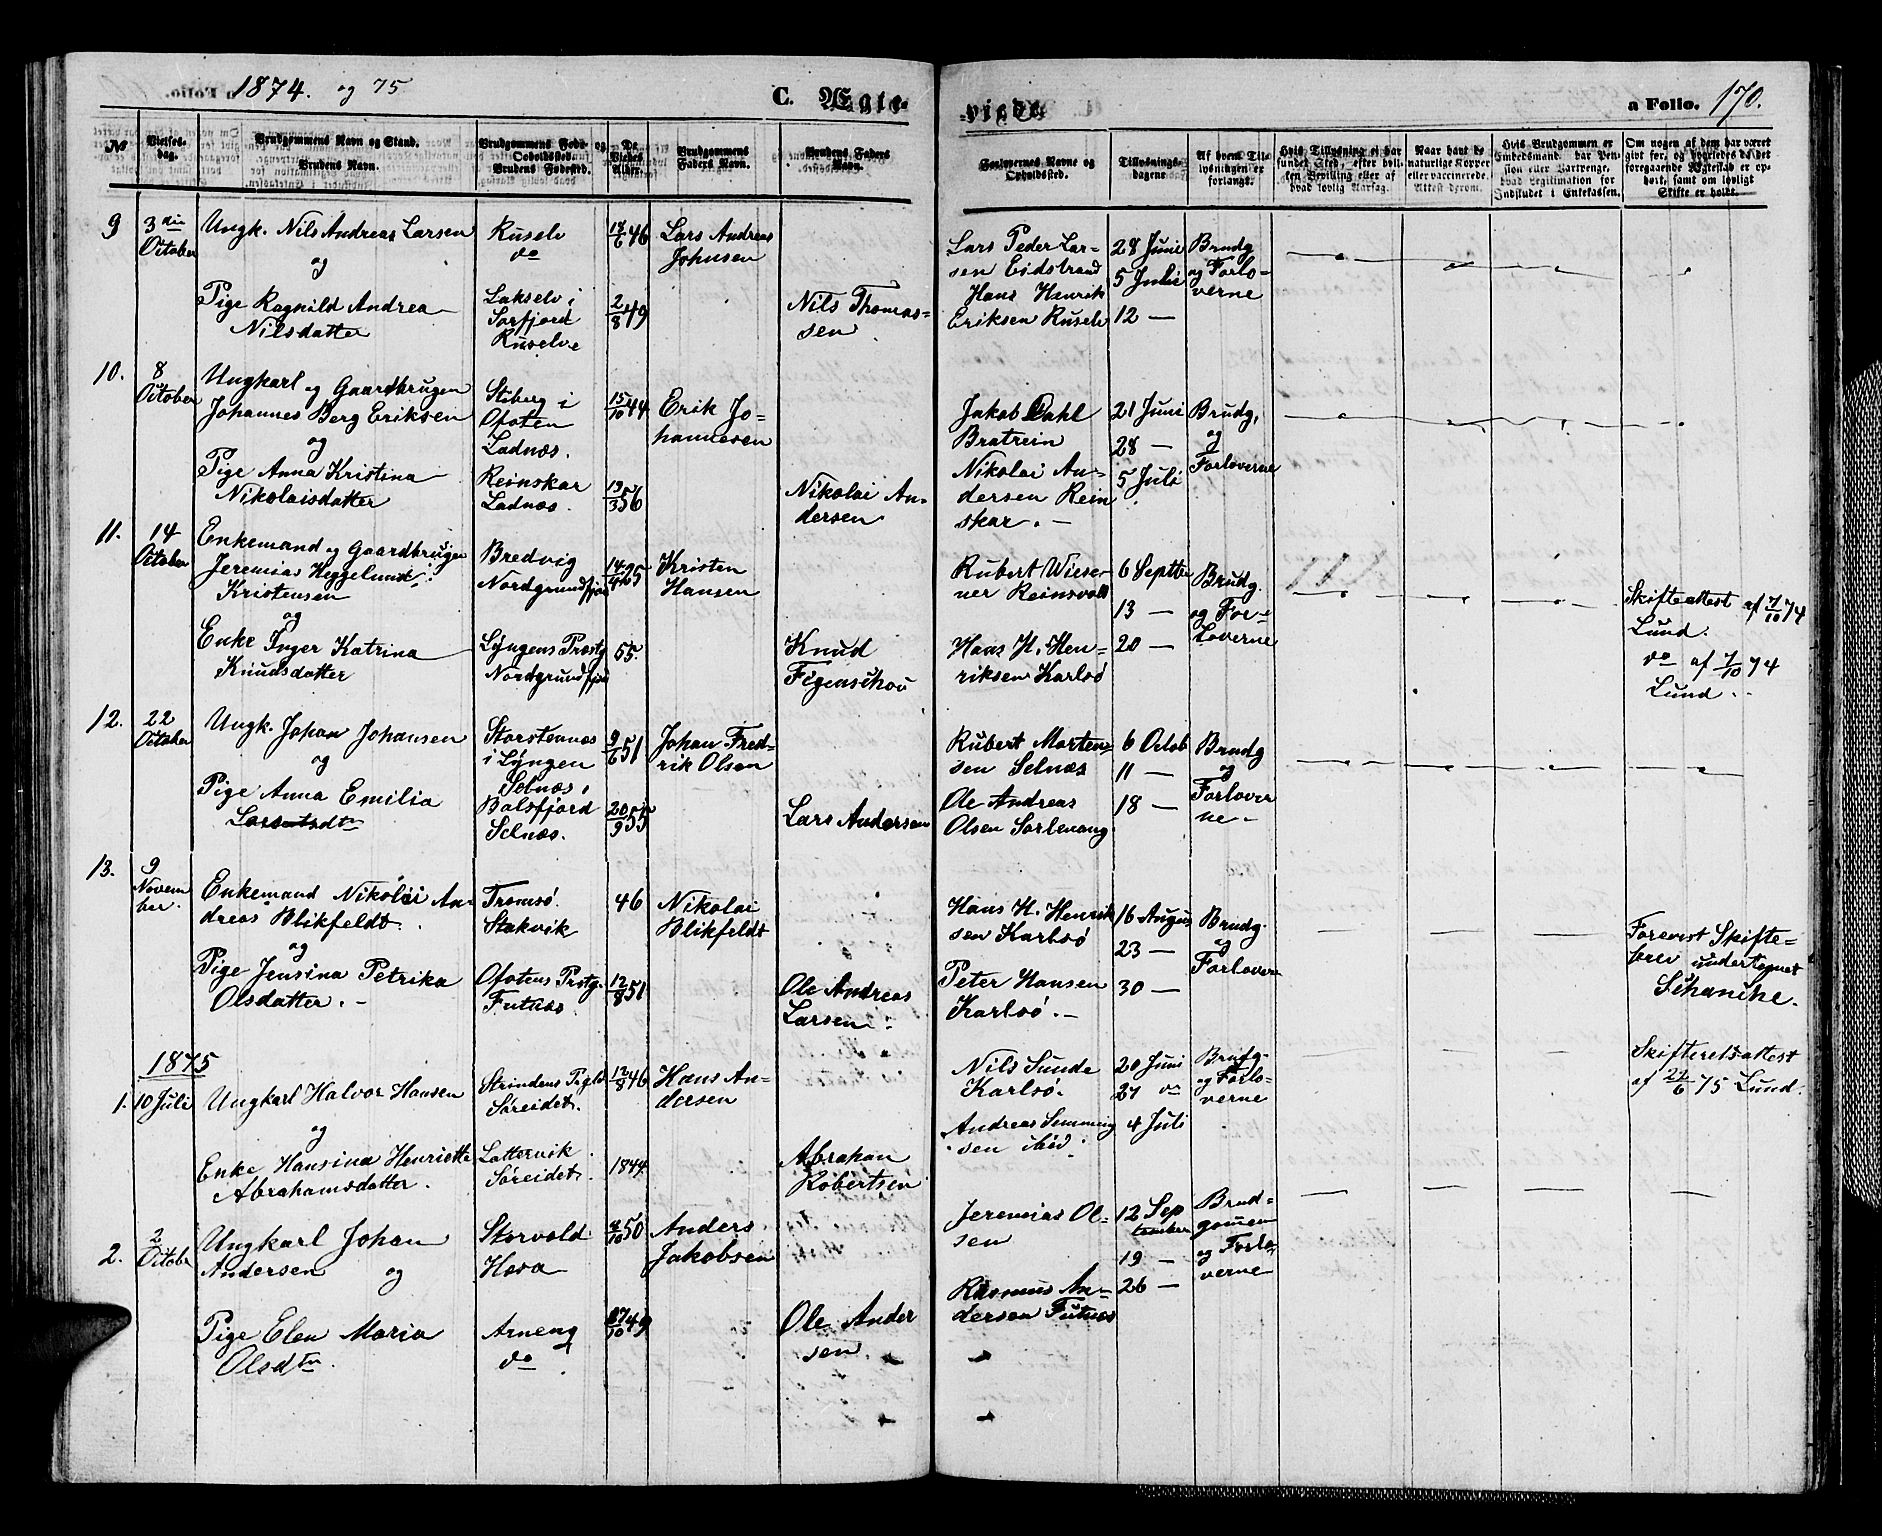 1874. og 75
C. Ægte-
viede
a Folio. 170.
No
Vielses-
dag.
Brudgommens Navn og Stand.
Brudens Navn.
Brudgommens Føde- og
Opholdssted.
Brudens Fødested.
De
Viedes
Alder.
Brudgommens
Faders Navn.
Brudens Faders
Navn.
Forlovernes Navne og
Opholdssted.
Tillysnings-
dagene.
Af hvem Til-
lysningen er
forlangt.
Hvis Tillysning ei har
fundet Sted, efter hvil-
ken Bevilling eller af
hvad lovlig Aarsag.
Naar havt de
naturlige Kopper
eller vaccinerede.
Attest derom.
Hvis Brudgommen er
Embedsmand, har Pen-
sion eller Vartpenge,
hvad Legitimation for
Indskudet i Enkekassen.
Om nogen af dem har været
givt før, og hvorledes da det
foregaaende Ægteskab er op-
hørt, samt om lovligt
Skifte er holdt.
9 3die
October
Ungk. Nils Andreas Larsen
og
Pige Ragnild Andrea
Nilsdatter
Ruselv
do
Lakselv i
Sørfjord
Ruselve
18/6 46
2/8 49
Lars Andreas
Johnsen
Nils Thomas-
sen
Lars Peder Lar-
sen Eidstrand
Hans Henrik
Eriksen Ruselv
28 Juni
5 Julie
12 —
Brudg
og Forlo-
verne
10. 8
October
Ungkarl og Gaardbrugen
Johannes Berg Eriksen
og
Pige Anna Kristina
Nikolaisdatter
Stiberg i
Ofoten
Ladnæs.
Reinskar
Ladnæs.
15/10 44
19/3 56
Erik Jo-
hannesen
Nikolai An-
dersen
Jakob Dahl
Bratrein
Nikolai An-
dersen Rein
skar. —
21 Juni
28 —
5 Juli
Brudg,
og
Forloverne
11. 14
October
Enkemand og Gaardbruger
Jeremias Heggelund
Kristensen
og
Enke Inger Katrina
Knudsdatter
Bredvig
Nordgrundfjor
Lyngens Præstg
Nordgrundfjor
14/4 25
55.
Kristen
Hansen
Knud
Figenschou
Rubert Wiese-
ner Reinsvold
Hans H. Hen-
riksen Karlsø
6 Septbe
13 —
20 —
Brudg.
og For-
loverne
Skifteattest af 7/10 74
Lund.
do af 7/10 74
Lund.
12. 22
October
Ungk. Johan Johansen
og
Pige Anna Emilia
Larsdtr
Storstennæs
i Lyngen
Selnæs,
Balsfjord
Selnæs.
9/6 51
20/9 55
Johan Fred-
rik Olsen
Lars Andersen
Rubert Morten-
sen Selnæs
Ole Andreas
Olsen Sørlenang
6 Octob
11 —
18 —
Brudg
og
Forlover
ne -
13. 9
Novem
ber.
Enkemand Nikolai An-
dreas Blikfeldt.
og
Pige Jensina Petrika
Olsdatter. -
Tromsø.
Stakvik
Ofotens Prstg.
Futnæs.
46
12/8 51
Nikolai
Blikfeldt
Ole Andreas
Larsen
Hans H. Henrik
sen Karlsø
Peter Hansen
Karlsø. -
16 Augus
23 —
30 —
Brudg.
og
Forlovere
Forevist Skifte-
brev undertegnet
Schanche.
1875
1. 10 Juli
Ungkarl Halvor Hansen
og
Enke Hansina Henriette
Abrahamsdatter.
Strindens Pgld
Søreidet.
Lattervik
Søreidet.
12/8 46
1844.
Hans An-
dersen
Abrahan
Robertsen
Nils Sunde
Karlsø.
Andreas Simming
sen ibid.
20 Juni
27 do
4 Juli
Brudg-
og Forlo-
verne
Skifteretsattest
af 21/6 75 Lund.
2. 2
October
Ungkarl Johan
Andersen og
Pige Elen Maria
Olsdtr.
Storvold
Hesa
Arneng
do
50
27/10 49
Anders
Jakobsen
Ole Ander
sen
Jeremias Ol-
sen
Rasmus An-
dersen Futnæs
12 Sep
tember
19 —
26 —
Brud-
gommen
og Forlo-
verne